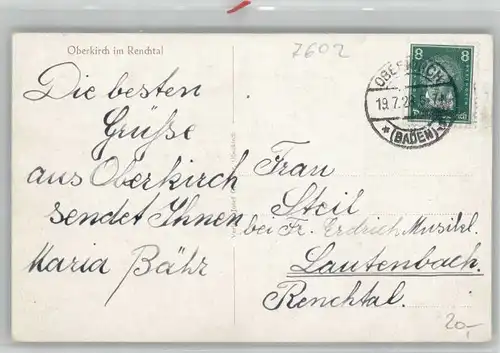 Oberkirch im Renchtal
7602
Die besten
Grüße
aus Oberkirch
sendet Ihnen
Maria Bähr
8 8
OBERKIRCH
19.7.28
(BADEN)
Frau
Steil
bei Fr. Erdrich Musikl.
Lautenbach
Renchtal.
20,-